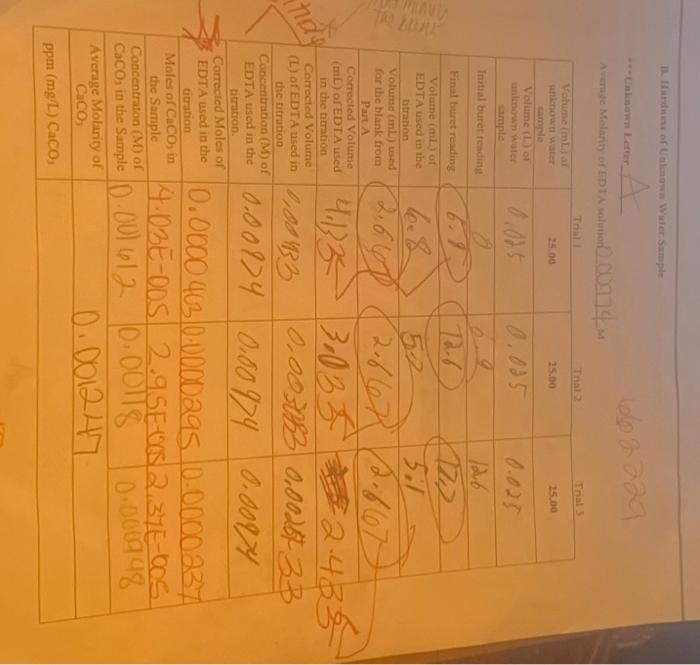 B. Hardness of Unknown Water Sample
***Unknown Letter A
Average Molarity of EDTA solution 0.00974 M
Trial 1 Trial 2 Trial 3
Volume (mL) of unknown water sample 25.00 25.00 25.00
Volume (L) of unknown water sample 0.025 0.025 0.025
Initial buret reading 0 6.9 12.6
Final buret reading 6.9 12.6 17.7
Volume (mL) of EDTA used in the titration 6.8 5.7 5.1
Volume (mL) used for the blank from Part A 2.667 2.667 2.667
Corrected Volume (mL) of EDTA used in the titration 4.133 3.033 2.433
Corrected Volume (L) of EDTA used in the titration 0.00433
Concentration (M) of EDTA used in the titration. 0.00974 0.00974 0.00974
Corrected Moles of EDTA used in the titration 0.0000403 0.0000295 0.0000237
Moles of CaCO₃ in the Sample 4.03E-005 2.95E-005 2.37E-005
Concentration (M) of CaCO₃ in the Sample 0.001612 0.00118 0.000948
Average Molarity of CaCO₃ 0.001247
ppm (mg/L) CaCO₃